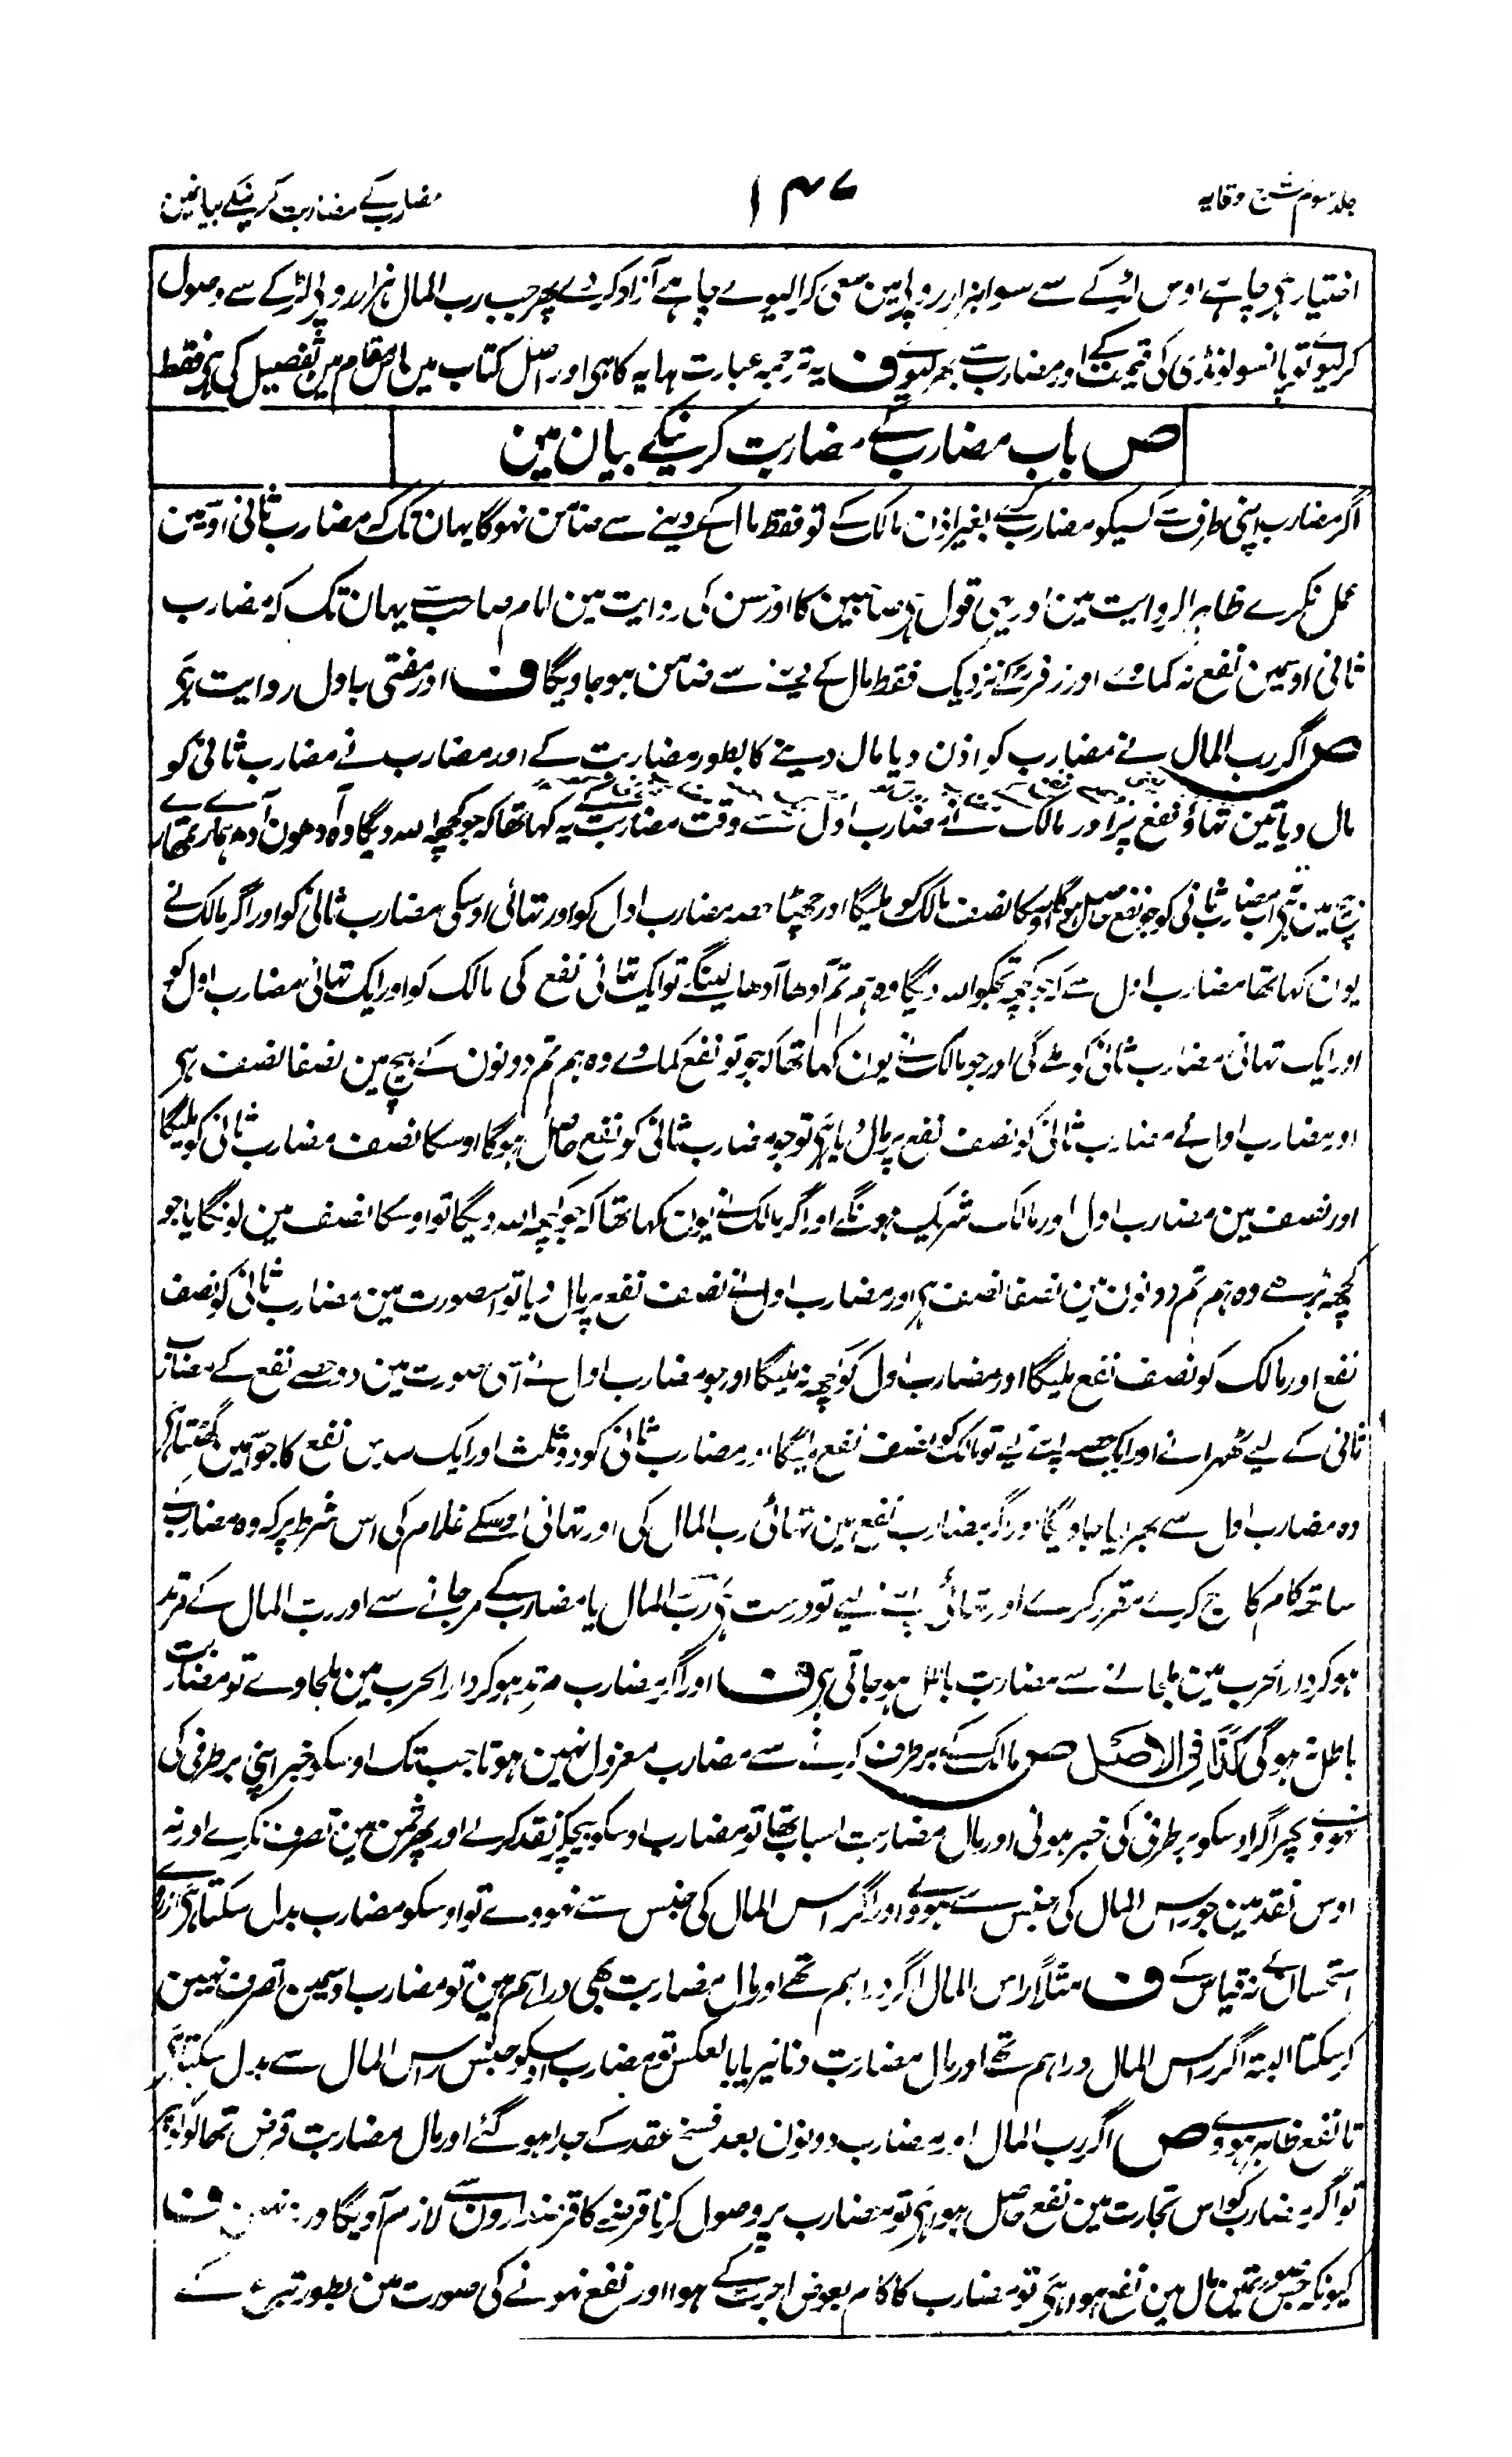 جلد سوم شرح وقایہ
۱۴۷
مضارب کے مضاربت کرنیکے بیانمین
اختیار ہی چاہے اوس لڑکے سے سوا ہزار روپیہ مین سعی کرالیوے چاہے آزاد کردے پھر جب رب المال ہزار روپیہ لڑکے سے وصول
کرلیوے تو پانسو لونڈی کی قیمت کے اور مضارب سے بھرلیوے ف یہ ترجمہ عبارت ہدایہ کا ہی اور اصل کتاب مین اس مقام مین تفصیل کی ہی فقط
ص باب مضارب کے مضاربت کرنیکے بیان مین
اگر مضارب اپنی طرف سے کسیکو مضارب کرے بغیر اذن مالک کے تو فقط مال کے دینے سے ضامن نہوگا یہان تک کہ مضارب ثانی اوسمین
عمل نکرے ظاہر الروایت مین اور یہی قول ہی صاحبین کا اور حسن کی روایت مین امام صاحب سے یہان تک کہ مضارب
ثانی اوسمین نفع نہ کماوے اور زفر کے نزدیک فقط مال کے دینے سے ضامن ہوجاویگا ف اور مفتی بہ اول روایت ہی
ص اگر رب المال نے مضارب کو اذن دیا مال دینے کا بطور مضاربت کے اور مضارب نے مضارب ثانی کو
مال دیا تین تہاؤ نفع پر اور مالک نے مضارب اول سے وقت مضاربت کے یہ کہا تھا کہ جو کچھ اللہ دیگا وہ آدھون آدہ ہمارے تمھارے
بیچ مین ہی اب مضارب ثانی کو جو نفع حاصل ہوگا اوسکا نصف مالک کو ملیگا اور چھٹا حصہ مضارب اول کو اور تہائی اوسکی مضارب ثانی کو اور اگر مالک نے
یون کہا تھا مضارب اول سے کہ جو کچھ تجکو اللہ دیگا وہ ہم تم آدھا آدھا لینگے تو ایک تہائی نفع کی مالک کو اور ایک تہائی مضارب اول کو
اور ایک تہائی مضارب ثانی کو ملے گی اور جو مالک نے یون کہا تھا کہ جو تو نفع کماوے وہ ہم تم دونون کے بیچ مین نصفا نصف ہی
اور مضارب اول نے مضارب ثانی کو نصف نفع پر مال دیا ہی تو جو مضارب ثانی کو نفع حاصل ہوگا اوسکا نصف مضارب ثانی کو ملیگا
اور نصف مین مضارب اول اور مالک شریک ہونگے اور اگر مالک نے یون کہا تھا کہ جو کچھ اللہ دیگا تو اوسکا نصف مین لونگا یا جو
کچھ بڑھے وہ ہم تم دونون مین نصفا نصف ہی اور مضارب اول نے نصف نفع پر مال دیا تو اسصورت مین مضارب ثانی کو نصف
نفع اور مالک کو نصف نفع ملیگا اور مضارب اول کو کچھ نہ ملیگا اور جو مضارب اول نے اسی صورت مین دو حصے نفع کے مضارب
ثانی کے لیے ٹھہرائے اور ایک حصہ اپنے لیے تو مالک کو نصف نفع ملیگا اور مضارب ثانی کو دو ثلث اور ایک سدس نفع کا جو اسمین گھٹتا ہی
وہ مضارب اول سے بھر دیا جاویگا اور اگر مضارب نفع مین تہائی رب المال کی اور تہائی اوسکے غلام کی اس شرط پر کہ وہ مضارب کے
ساتھ کام کاج کرے مقرر کرے اور تہائی اپنے لیے تو درست ہی رب المال یا مضارب کے مرجانے سے اور رب المال کے مرتد
ہوکر دار الحرب مین ملجانے سے مضاربت باطل ہوجاتی ہی ف اور اگر مضارب مرتد ہوکر دار الحرب مین ملجاوے تو مضاربت
باطل نہ ہوگی کذا فی الاصل ص مالک کے برطرف کرنے سے مضارب معزول نہین ہوتا جب تک اوسکو خبر اپنی برطرفی کی
نہووے پھر اگر اوسکو برطرفی کی خبر ہوئی اور مال مضاربت اسباب تھا تو مضارب اوسکو بیچکر نقد کرلے اور پھر ثمن مین تصرف نکرے اور نہ
اوس نقد مین جو راس المال کی جنس سے ہووے اور اگر راس المال کی جنس سے نہووے تو اوسکو مضارب بدل سکتا ہی از روے
استحسان کے نہ قیاس کے ف مثلاً راس المال اگر دراہم تھے اور مال مضاربت بھی دراہم ہین تو مضارب اوسمین تصرف نہین
کرسکتا البتہ اگر راس المال دراہم تھے اور مال مضاربت دنانیر یا بالعکس تو مضارب اوسکو جنس راس المال سے بدل سکتا ہی
تا نفع ظاہر ہووے ص اگر رب المال اور مضارب دونون بعد فسخ عقد کے جدا ہوگئے اور مال مضاربت قرض تھا لوگونپر
تو اگر مضارب کو اس تجارت مین نفع حاصل ہوا ہی تو مضارب پر وصول کرنا قرضے کا قرضدارون سے لازم آویگا ورنہ نہین ف
کیونکہ جس صورتمین مال مین نفع ہوا ہی تو مضارب کا کام بعوض اجرت کے ہوا اور نفع نہونے کی صورت مین بطور تبرع کے